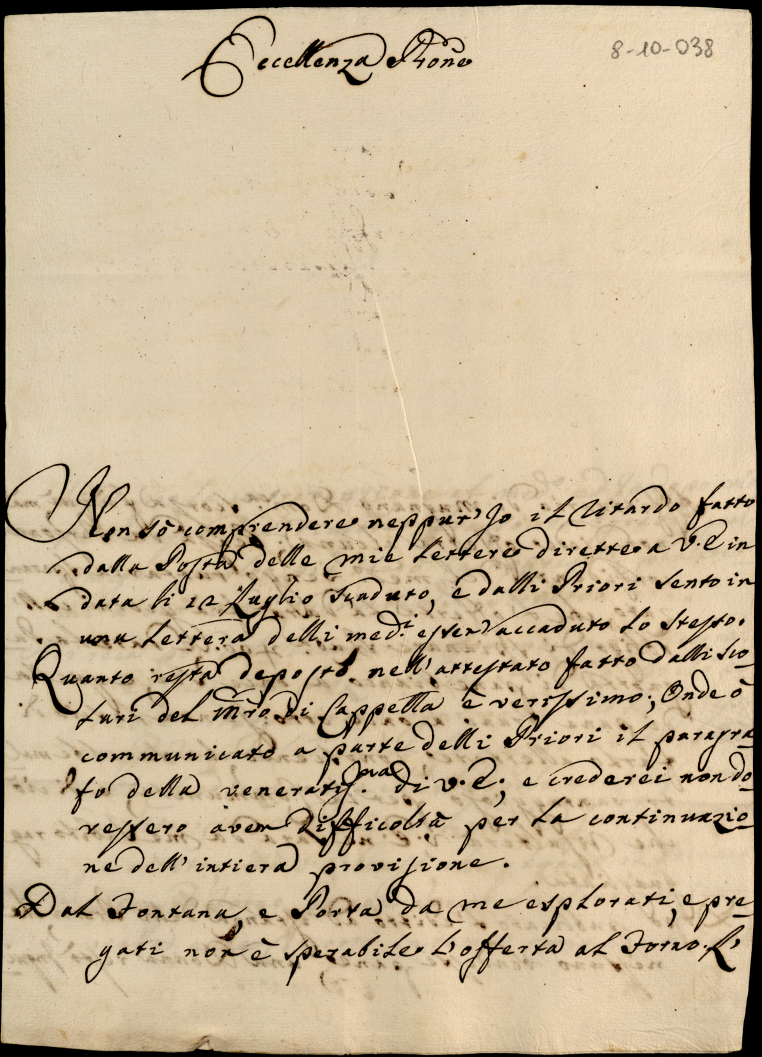 8-10-038
Eccellenza Prone
Non sò comprendere neppur Jo il ritardo fatto
dalla Posta delle mie lettere dirette a V. E in
data li 12 Luglio scaduto, e dalli Priori sento in
una lettera delli med.i esser accaduto lo stesso.
Quanto resta deposto nell'attestato fatto dalli Sco-
lari del Mro di Cappella è verissimo; Onde ò
communicato a parte delli Priori il paragra-
fo della veneratiss.ma di V. E.; e crederei non do-
vessero aver difficoltà per la continuazio-
ne dell'intiera provisione.
Dal Fontana, e Porta, da me esplorati, e pre-
gati non è sperabile l'offerta al Forno.